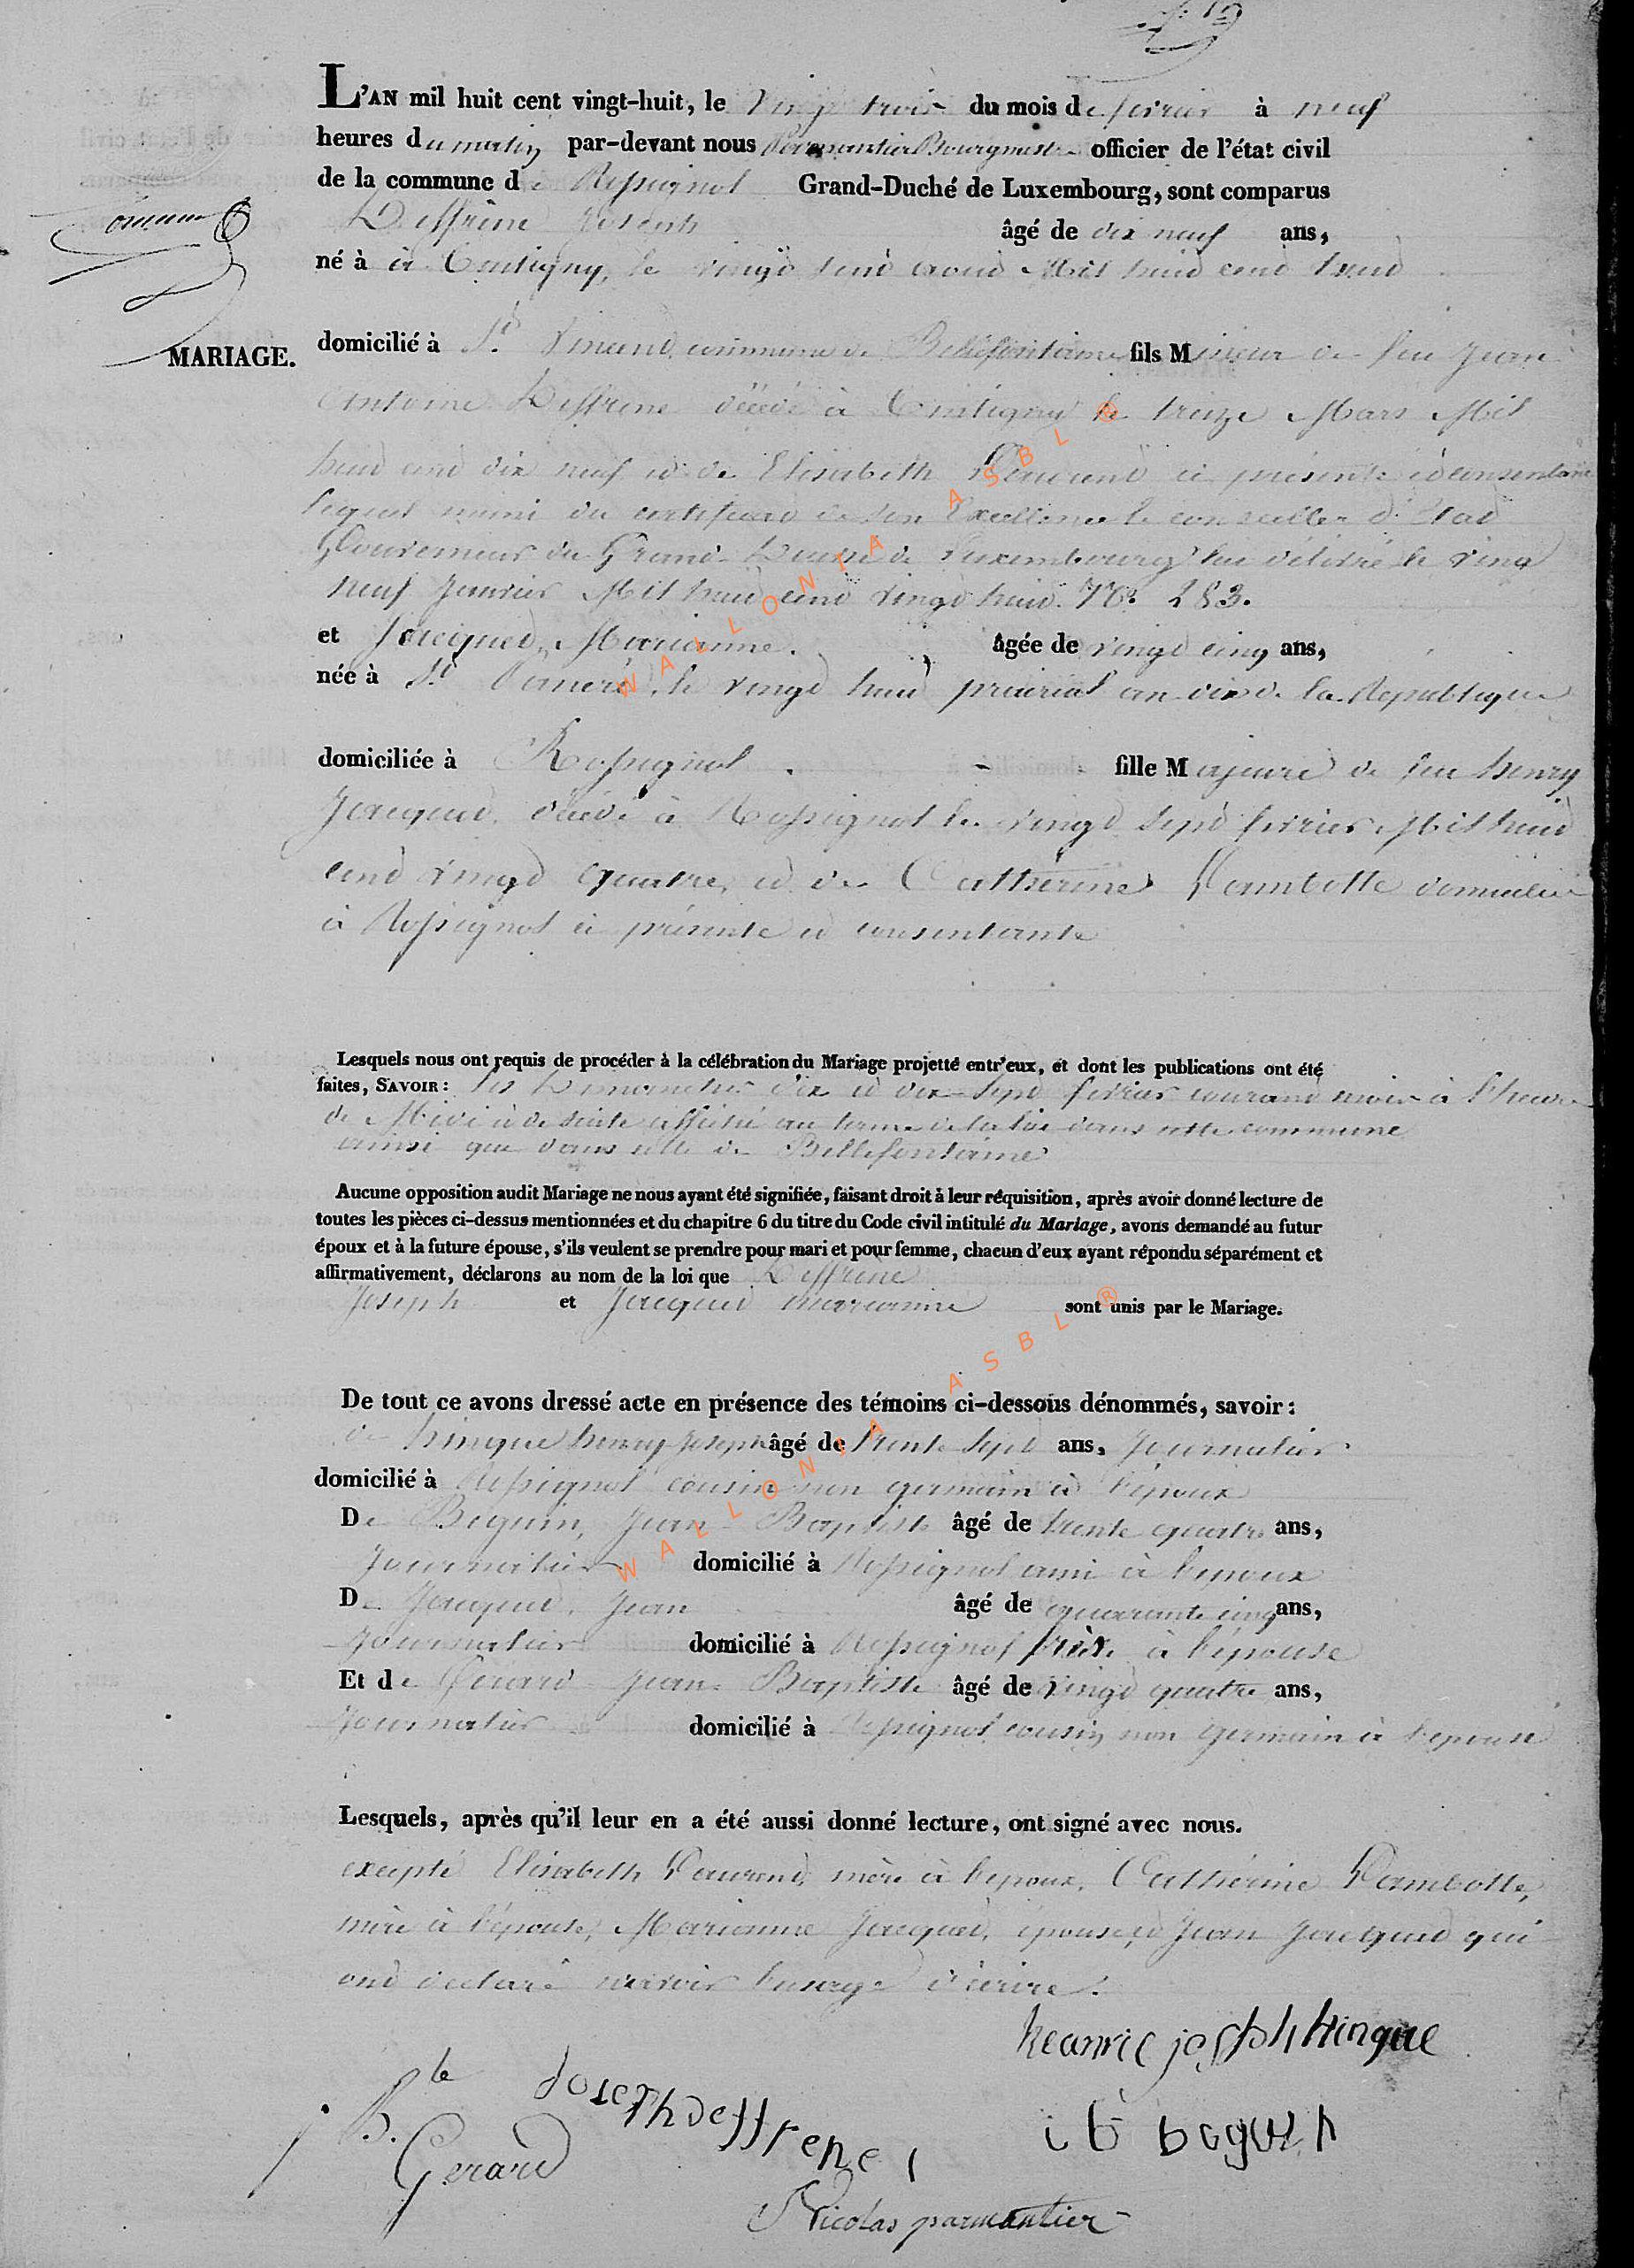 L'AN mil huit cent vingt-huit, le vingt trois du mois de fevrier à neuf
heures du matin par-devant nous Parmantier Bourgmestre officier de l'état civil
de la commune de Rossignol Grand-Duché de Luxembourg, sont comparus
Deffrène Joseph âgé de dix neuf ans,
né à à Tintigny, le vingt août Mil huit cent huit
MARIAGE.
domicilié à St. Vincent, commune de Bellefontaine fils Mineur de feu Jean
Antoine Deffrene décédé à Tintigny le treize Mars Mil
huit cent dix neuf et de Elisabeth ci présente et consentante
lequel muni du certificat de son Excellence le conseiller d'Etat
Gouverneur du Grand Duché de Luxembourg lui délivré le vingt
neuf Janvier Mil huit cent vingt huit No. 283.
et Jacquet, Marianne. âgée de vingt cinq ans,
née à St. le vingt huit prairial an dix de la Republique
domiciliée à Rossignol. fille Majeure de feu henry
Jacquet, décédé à Rossignol le vingt sept fevrier Mil huit
cent vingt quatre, et de Catherine Lambotte domiciliée
à Rossignol ci présente et consentante
Lesquels nous ont requis de procéder à la célébration du Mariage projetté entr'eux, et dont les publications ont été
faites, SAVOIR: les Dimanches dix et dix-sept fevrier courant mois à l'heure
de Midi et de suite affiché au terme de la loi dans cette commune
ainsi que dans celle de Bellefontaine
Aucune opposition audit Mariage ne nous ayant été signifiée, faisant droit à leur réquisition, après avoir donné lecture de
toutes les pièces ci-dessus mentionnées et du chapitre 6 du titre du Code civil intitulé du Mariage, avons demandé au futur
époux et à la future épouse, s'ils veulent se prendre pour mari et pour femme, chacun d'eux ayant répondu séparément et
affirmativement, déclarons au nom de la loi que Deffrène
Joseph et Jacquet marianne sont unis par le Mariage.
De tout ce avons dressé acte en présence des témoins ci-dessous dénommés, savoir:
de hinque henry Joseph âgé de trente sept ans, Journalier
domicilié à Rossignol cousin non germain à l'époux
De Beguin, Jean-Baptiste âgé de trente quatre ans,
Journalier domicilié à Rossignol ami à l'époux
De Jacquet, Jean âgé de quarante cinq ans,
Journalier domicilié à Rossignol frère à l'épouse
Et de Gérard Jean-Baptiste âgé de vingt quatre ans,
Journalier domicilié à Rossignol cousin non germain à l'épouse
Lesquels, après qu'il leur en a été aussi donné lecture, ont signé avec nous.
excepté Elisabeth mère à l'époux, Catherine Lambotte,
mère à l'épouse, Marianne Jacquet, épouse, et Jean Jacquet qui
ont declaré n'avoir l'usage d'écrire.
heanrie joseph hinque
Joseph deffrene
j Bte Gerard
i b beguin
Nicolas parmantier
WALLONIA ASBL ®
WALLONIA ASBL ®